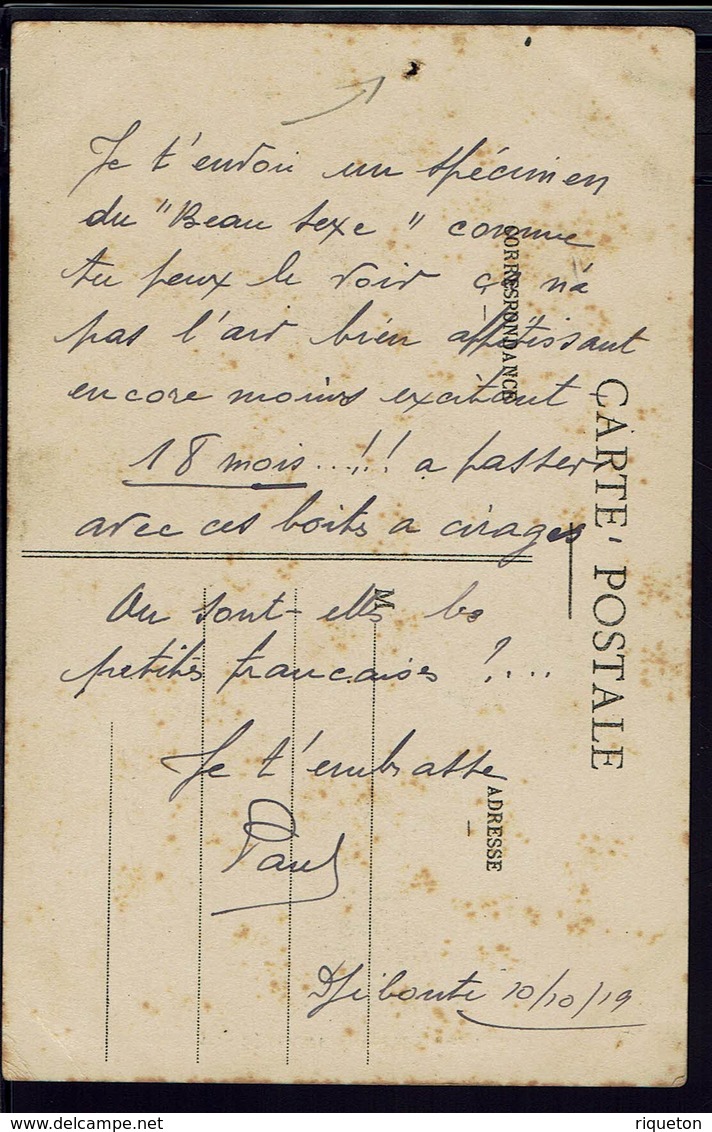 Je t'envoi un spécimen
du "Beau sexe" comme
tu peux le voir ça n'a
pas l'air bien appétissant
encore moins excitant
18 mois...!!! a passer
avec ces boîtes a cirages
Ou sont-elles les
petites françaises ?...
Je t'embrasse
Paul
Djibouti 10/10/19
CARTE POSTALE
CORRESPONDANCE
ADRESSE
M
riqueton